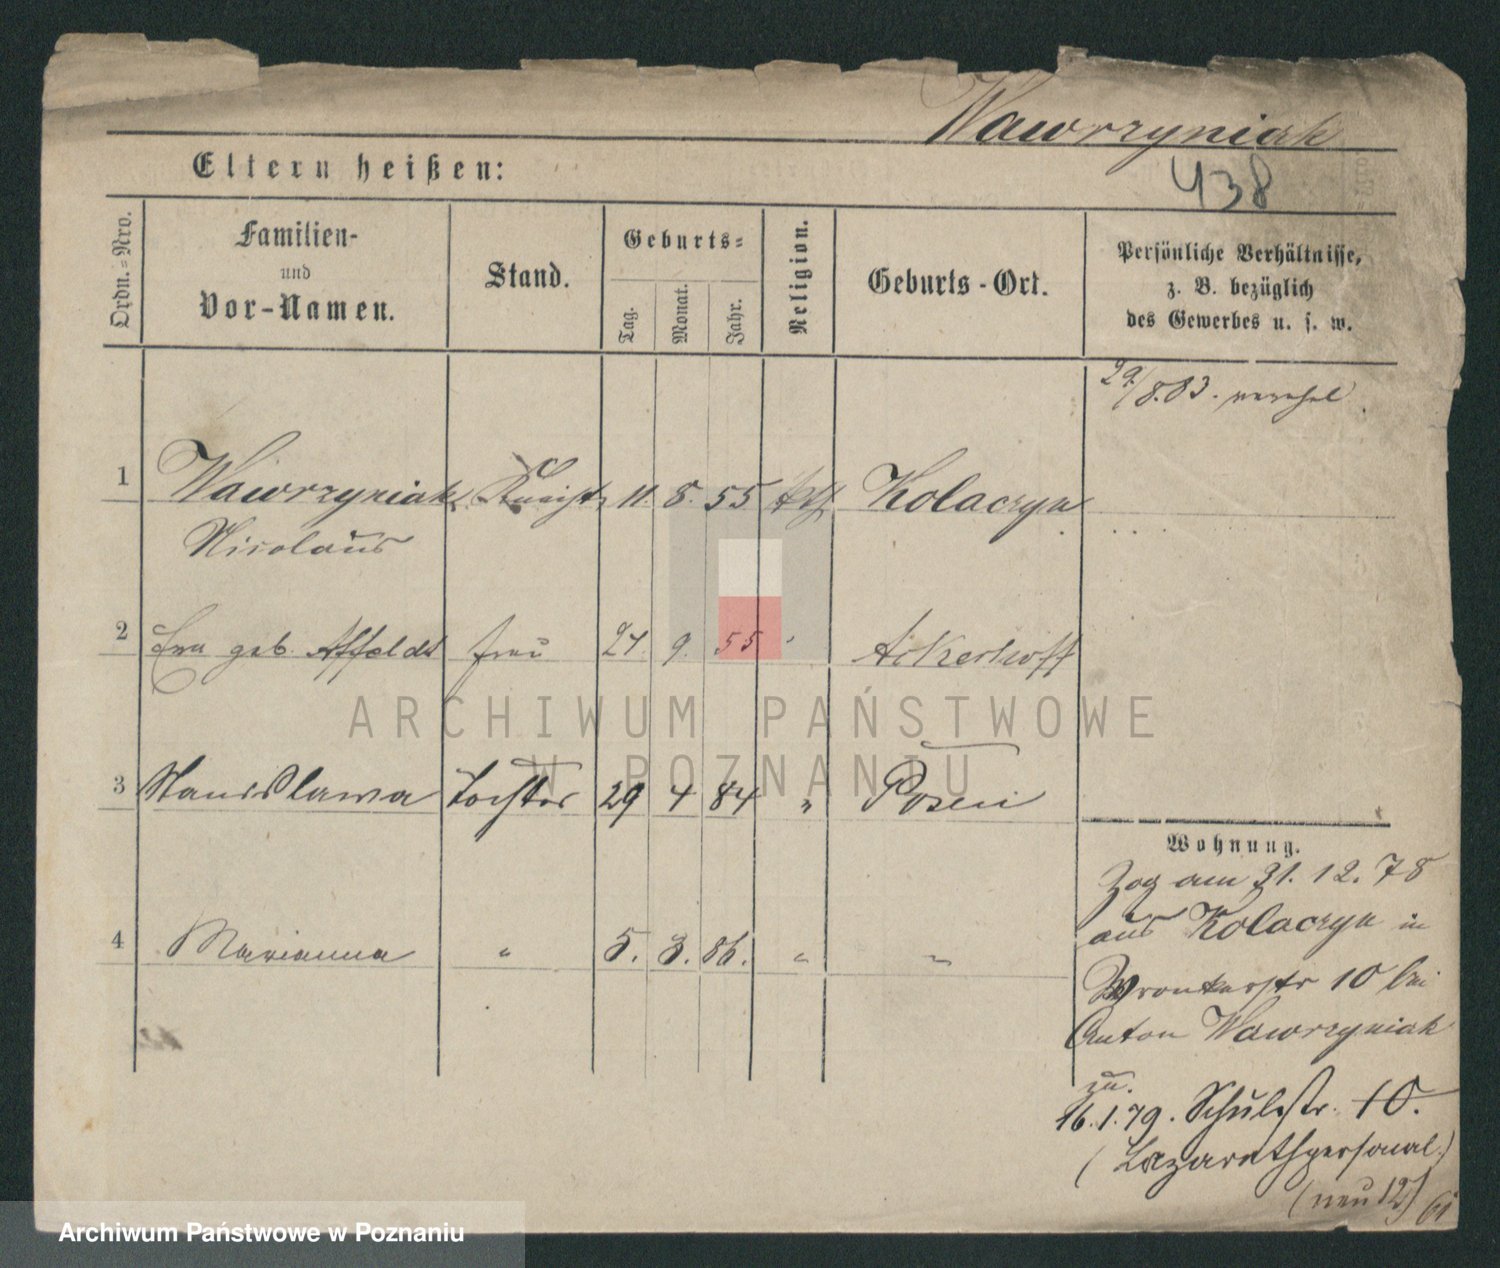 Wawrzyniak
438
Eltern heißen:
Ordn.=Nro.
Familien-
und
Vor-Namen.
Stand.
Geburts=
Tag.
Monat.
Jahr.
Religion.
Geburts-Ort.
Persönliche Verhältnisse,
z. B. bezüglich
des Gewerbes u. s. w.
29/8.83.
1 Wawrzyniak 11. 8. 55 kth Kolaczyn
Nicolaus
2 Eva geb. Affeldt Frau 27. 9. 55 " Ackerhoff
3 Stanislawa Tochter 29 4 84 " Posen
4 Marianna " 5. 3. 86. " "
Wohnung.
Zog am 31. 12. 78
aus Kolaczyn in
Wronkerstr 10 bei
Anton Wawrzyniak
zu.
16.1.79. Schulstr. 10.
(Lazarethpersonal.)
(neu 12)
ARCHIWUM PAŃSTWOWE
W POZNANIU
Archiwum Państwowe w Poznaniu